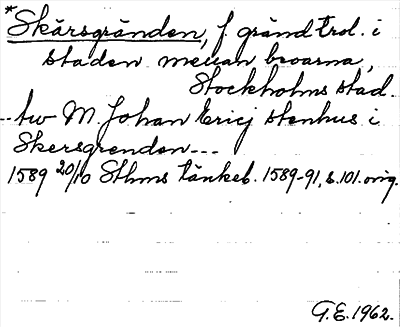 *Skärsgränden, f. gränd trol. i
staden mellan broarna,
Stockholms stad.
--tw M. Johan Ericj stenhus i
Skersgrenden---
1589 20/10 Sthms tänkeb. 1589-91, s. 101. orig.
G.E. 1962.